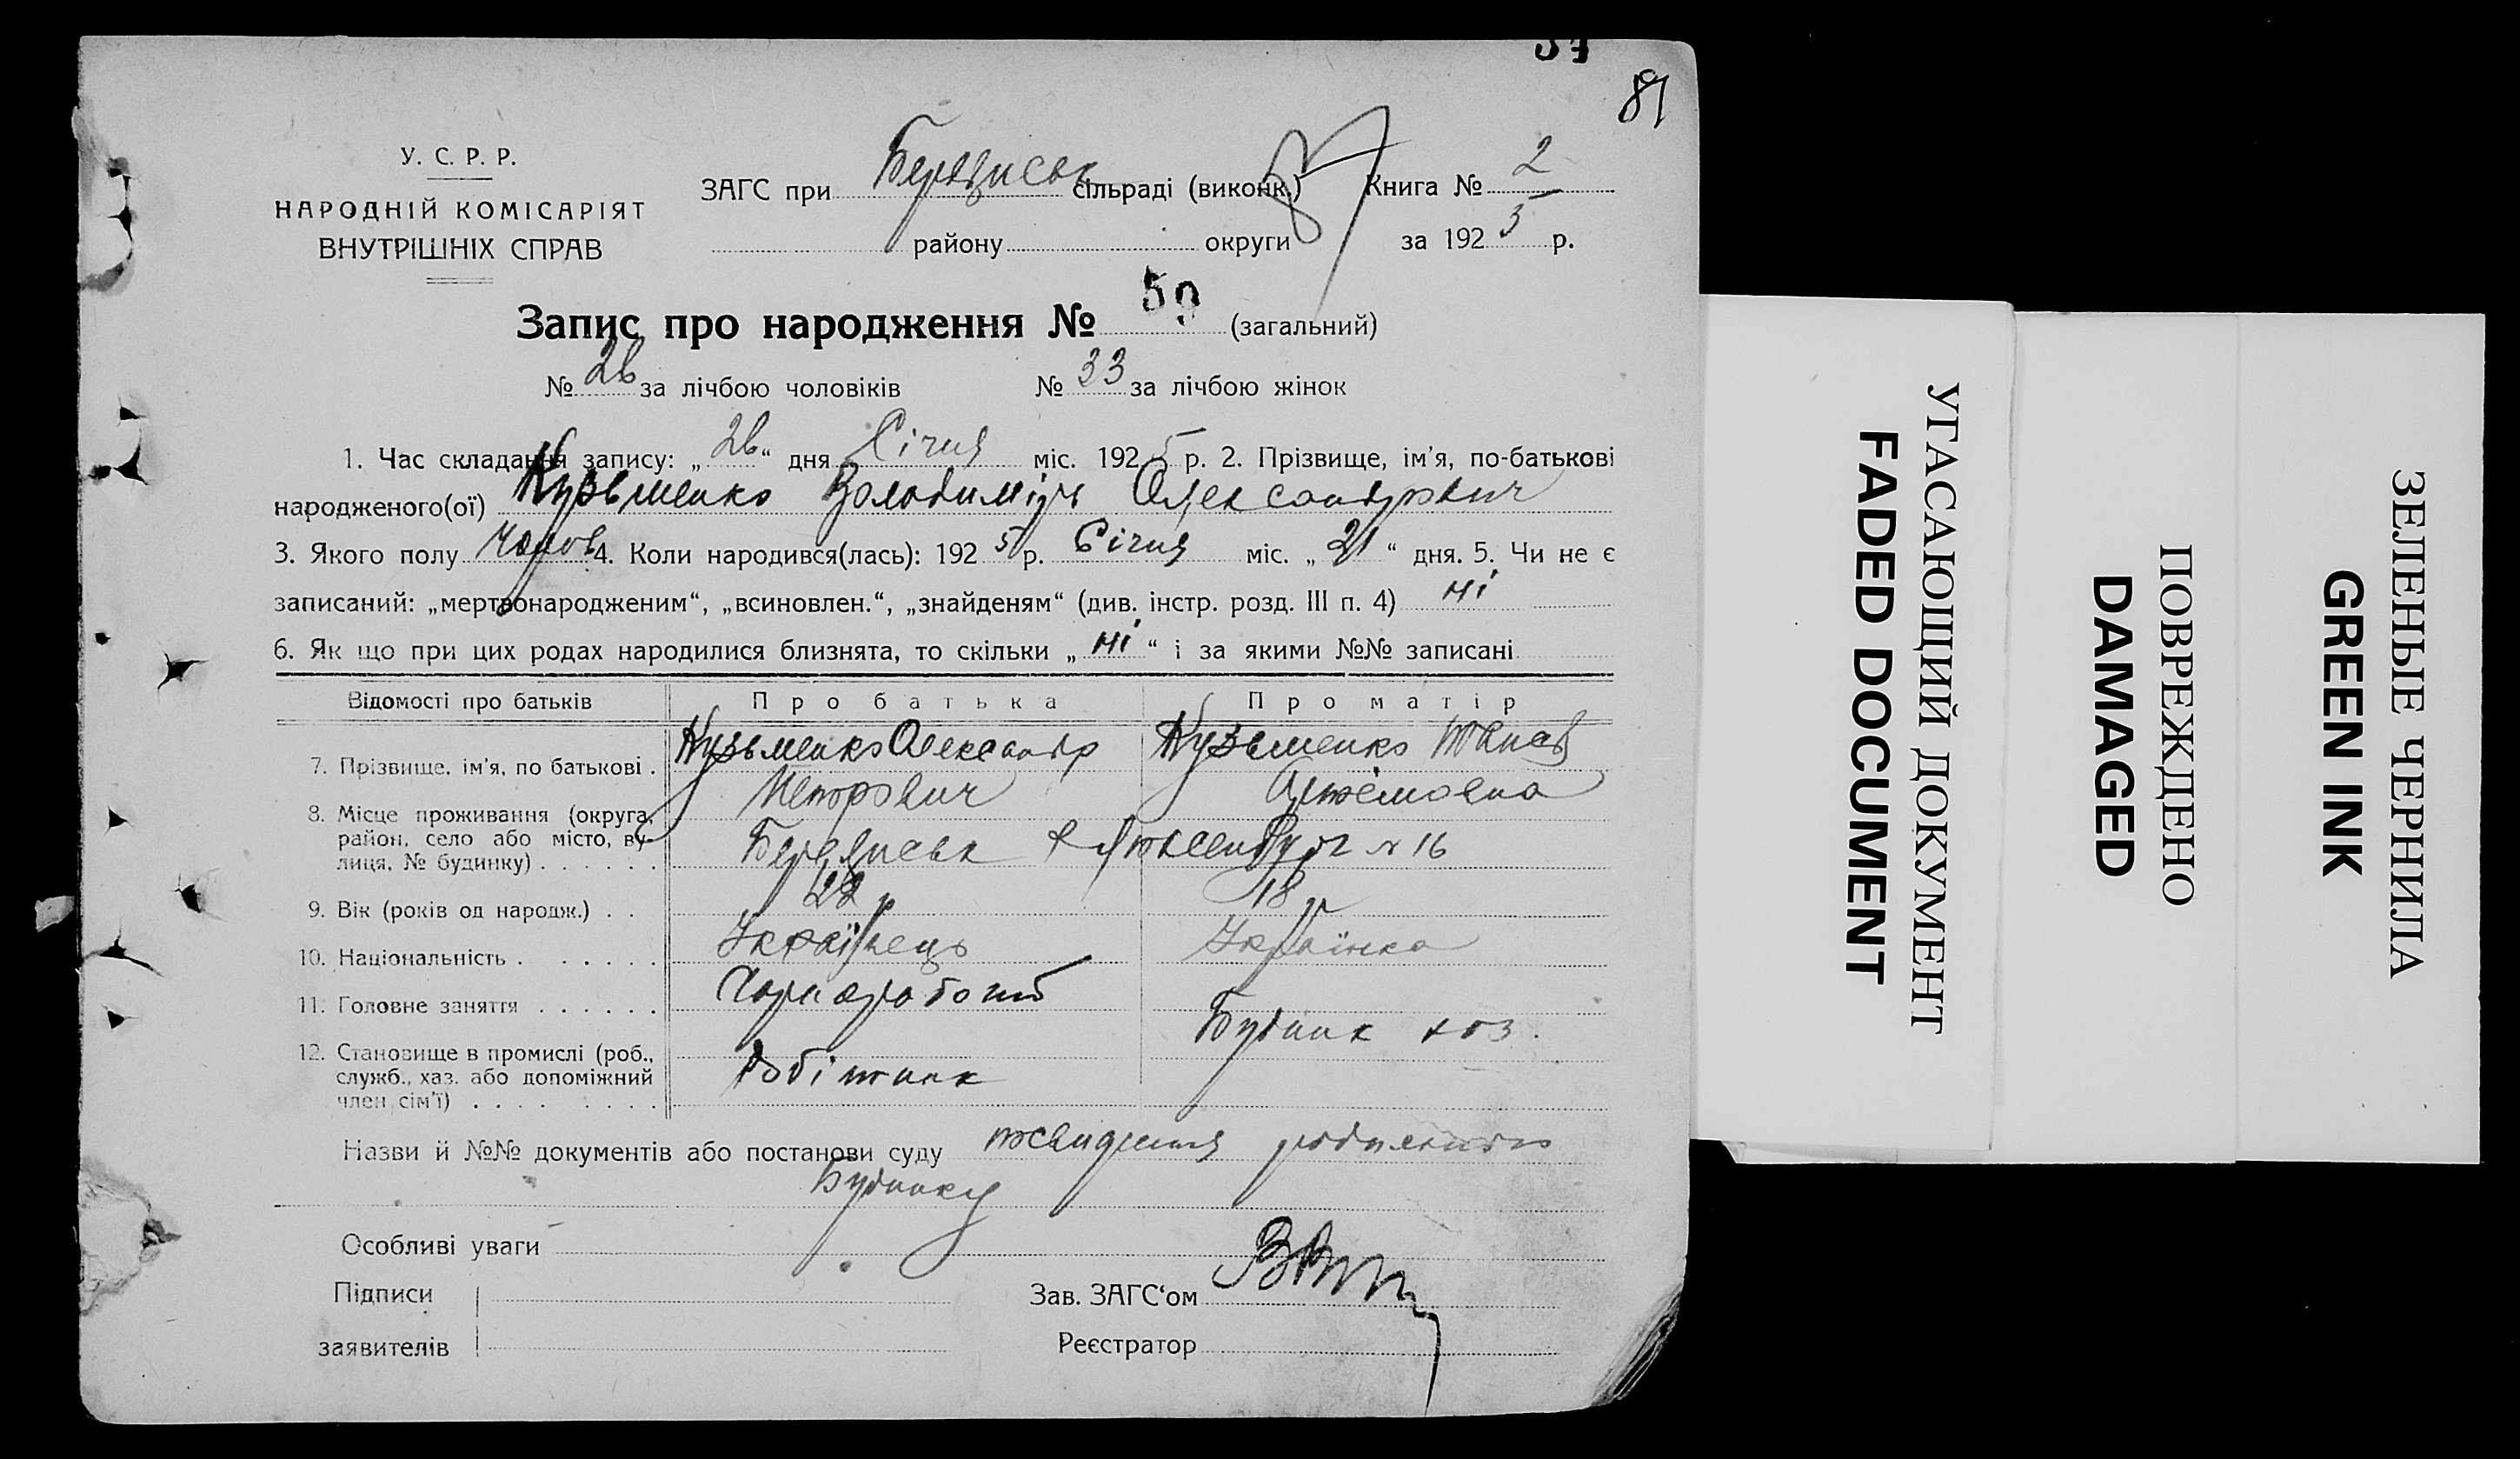 81
У. С. Р. Р.
НАРОДНІЙ КОМІСАРІЯТ
ВНУТРІШНІХ СПРАВ
ЗАГС при сільраді (виконк.) Книга № 2
району округи за 1925 р.
87
Запис про народження № 59 (загальний)
№ 26 за лічбою чоловіків № 33 за лічбою жінок
1. Час складання запису: „26“ дня Січня міс. 1925 р. 2. Прізвище, ім'я, по-батькові
народженого(ої) Кузьменко Володимір Олександрович
3. Якого полу Чолов 4. Коли народився(лась): 1925 р. Січня міс. „21“ дня. 5. Чи не є
записаний: „мертвонародженим“, „всиновлен.“, „знайденям“ (див. інстр. розд. III п. 4) ні
6. Як що при цих родах народилися близнята, то скільки „ні“ і за якими №№ записані
Відомості про батьків Про батька Про матір
7. Прізвище, ім'я, по батькові . Кузьменко Олександр Кузьменко
Петрович Артемовна
8. Місце проживання (округа,
район, село або місто, ву-
лиця, № будинку) . . . . . . Р Люксенбург № 16
9. Вік (років од народж.) . . 22 р 18 р
10. Національність . . . . . . Українець Українка
11. Головне заняття . . . . . . Чорнороб
12. Становище в промислі (роб.,
служб., хаз. або допоміжний
член сім'ї) . . . . . . . . Робітник Будинк хоз.
Назви й №№ документів або постанови суду посвидчення родильного
Будинку
Особливі уваги
Підписи
заявителів
Зав. ЗАГС'ом
Реєстратор
УГАСАЮЩИЙ ДОКУМЕНТ
FADED DOCUMENT
ПОВРЕЖДЕНО
DAMAGED
ЗЕЛЕНЫЕ ЧЕРНИЛА
GREEN INK